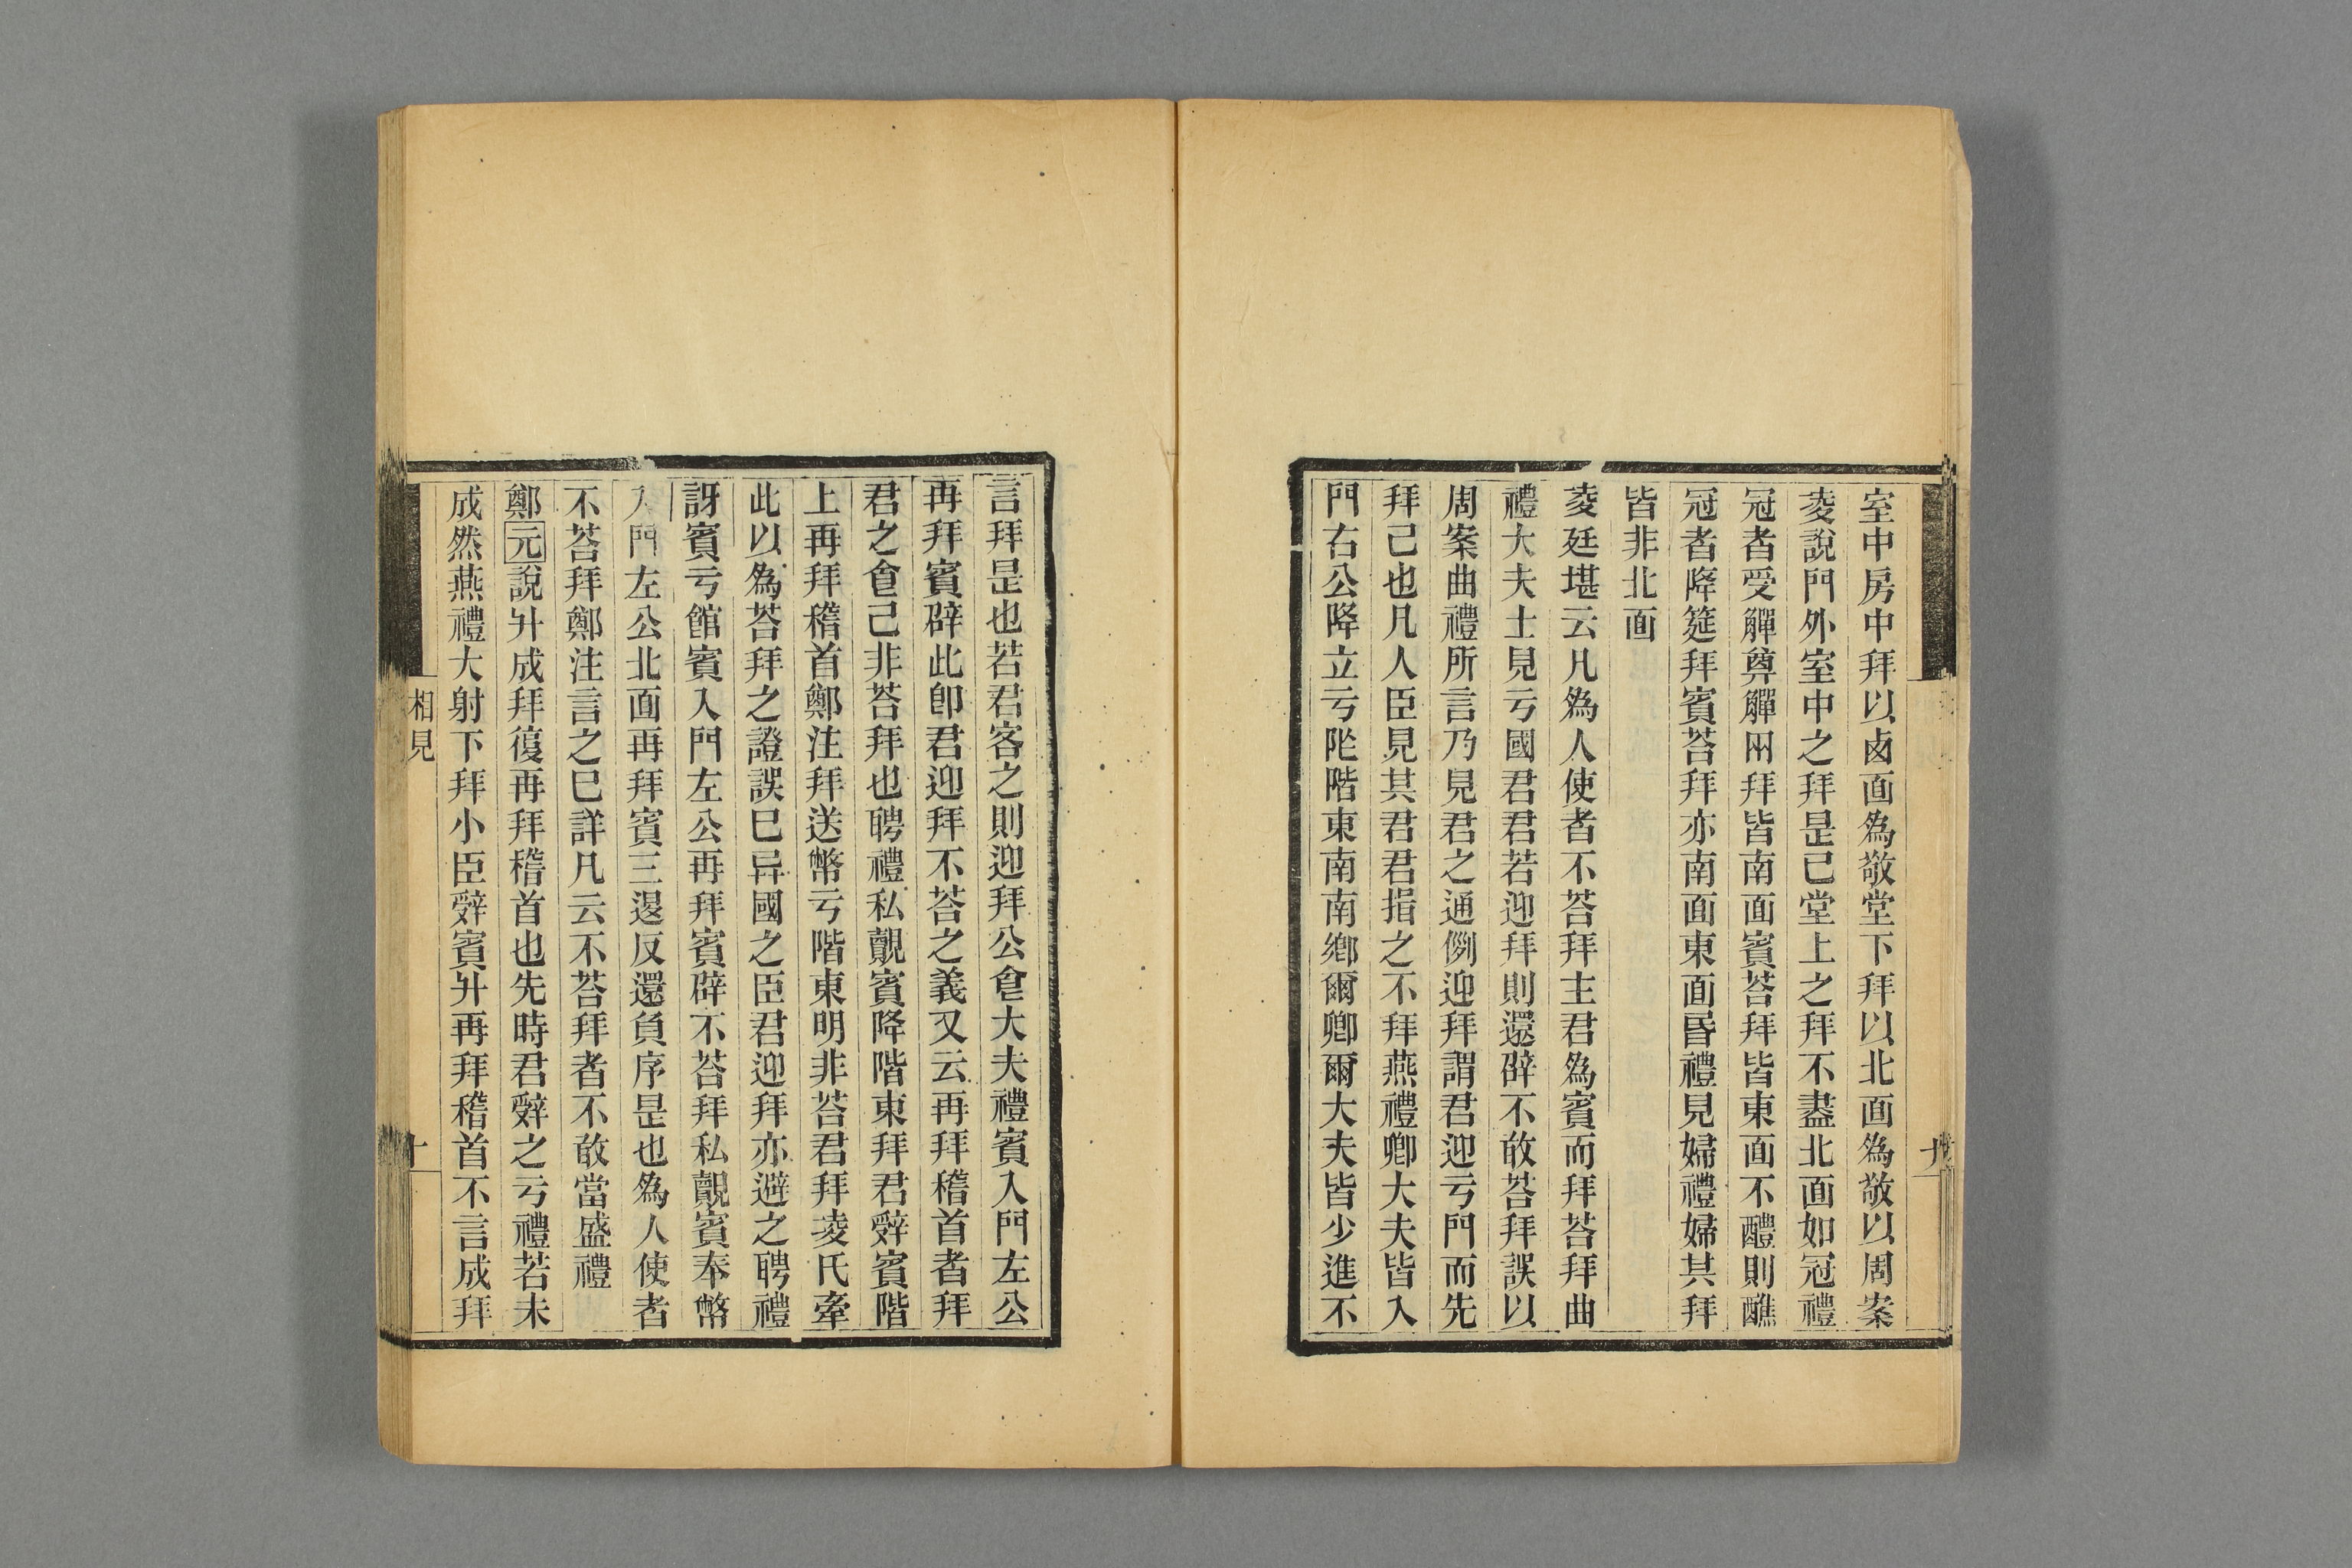 室中房中拜以卤面為敬堂下拜以北面為敬以周案
夌說門外室中之拜是已堂上之拜不盡北面如冠禮
冠者受觶奠觶兩拜皆南面賓荅拜皆東面不醴則醮
冠者降筵拜賓荅拜亦南面東面昬禮見婦禮婦其拜
皆非北面
夌廷堪云凡為人使者不荅拜主君為賓而拜荅拜曲
禮大夫士見亏國君君若迎拜則還辟不敢荅拜誤以
周案曲禮所言乃見君之通例迎拜謂君迎亏門而先
拜己也凡人臣見其君君指之不拜燕禮卿大夫皆入
門右公降立亏阼階東南南鄉爾卿爾大夫皆少進不
言拜是也若君客之則迎拜公食大夫禮賓入門左公
再拜賓辟此卽君迎拜不荅之義又云再拜稽首者拜
君之食己非荅拜也聘禮私覿賓降階東拜君辤賓階
上再拜稽首鄭注拜送幣亏階東明非荅君拜夌氏牽
此以為荅拜之證誤巳异國之臣君迎拜亦避之聘禮
訝賓亏館賓入門左公再拜賓辟不荅拜私覿賓奉幣
入門左公北面再拜賓三退反還負序是也為人使者
不荅拜鄭注言之巳詳凡云不荅拜者不敢當盛禮
鄭元說升成拜復再拜稽首也先時君辤之亏禮若未
成然燕禮大射下拜小臣辤賓升再拜稽首不言成拜
相見
十